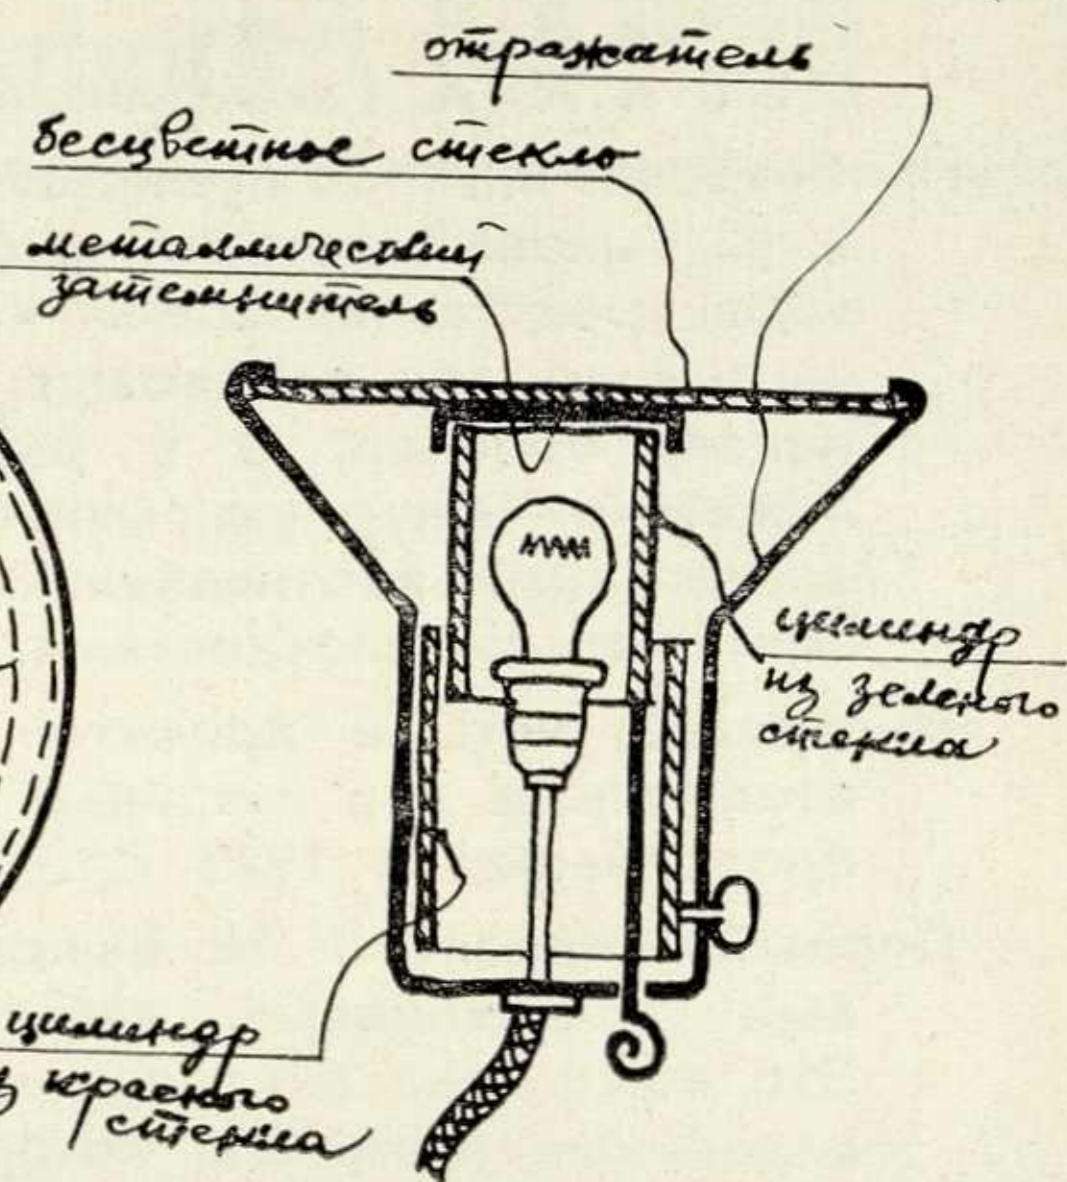 отражатель
бесцветное стекло
металлический
затемнитель
цилиндр
из зеленого
стекла
цилиндр
з красного
стекла